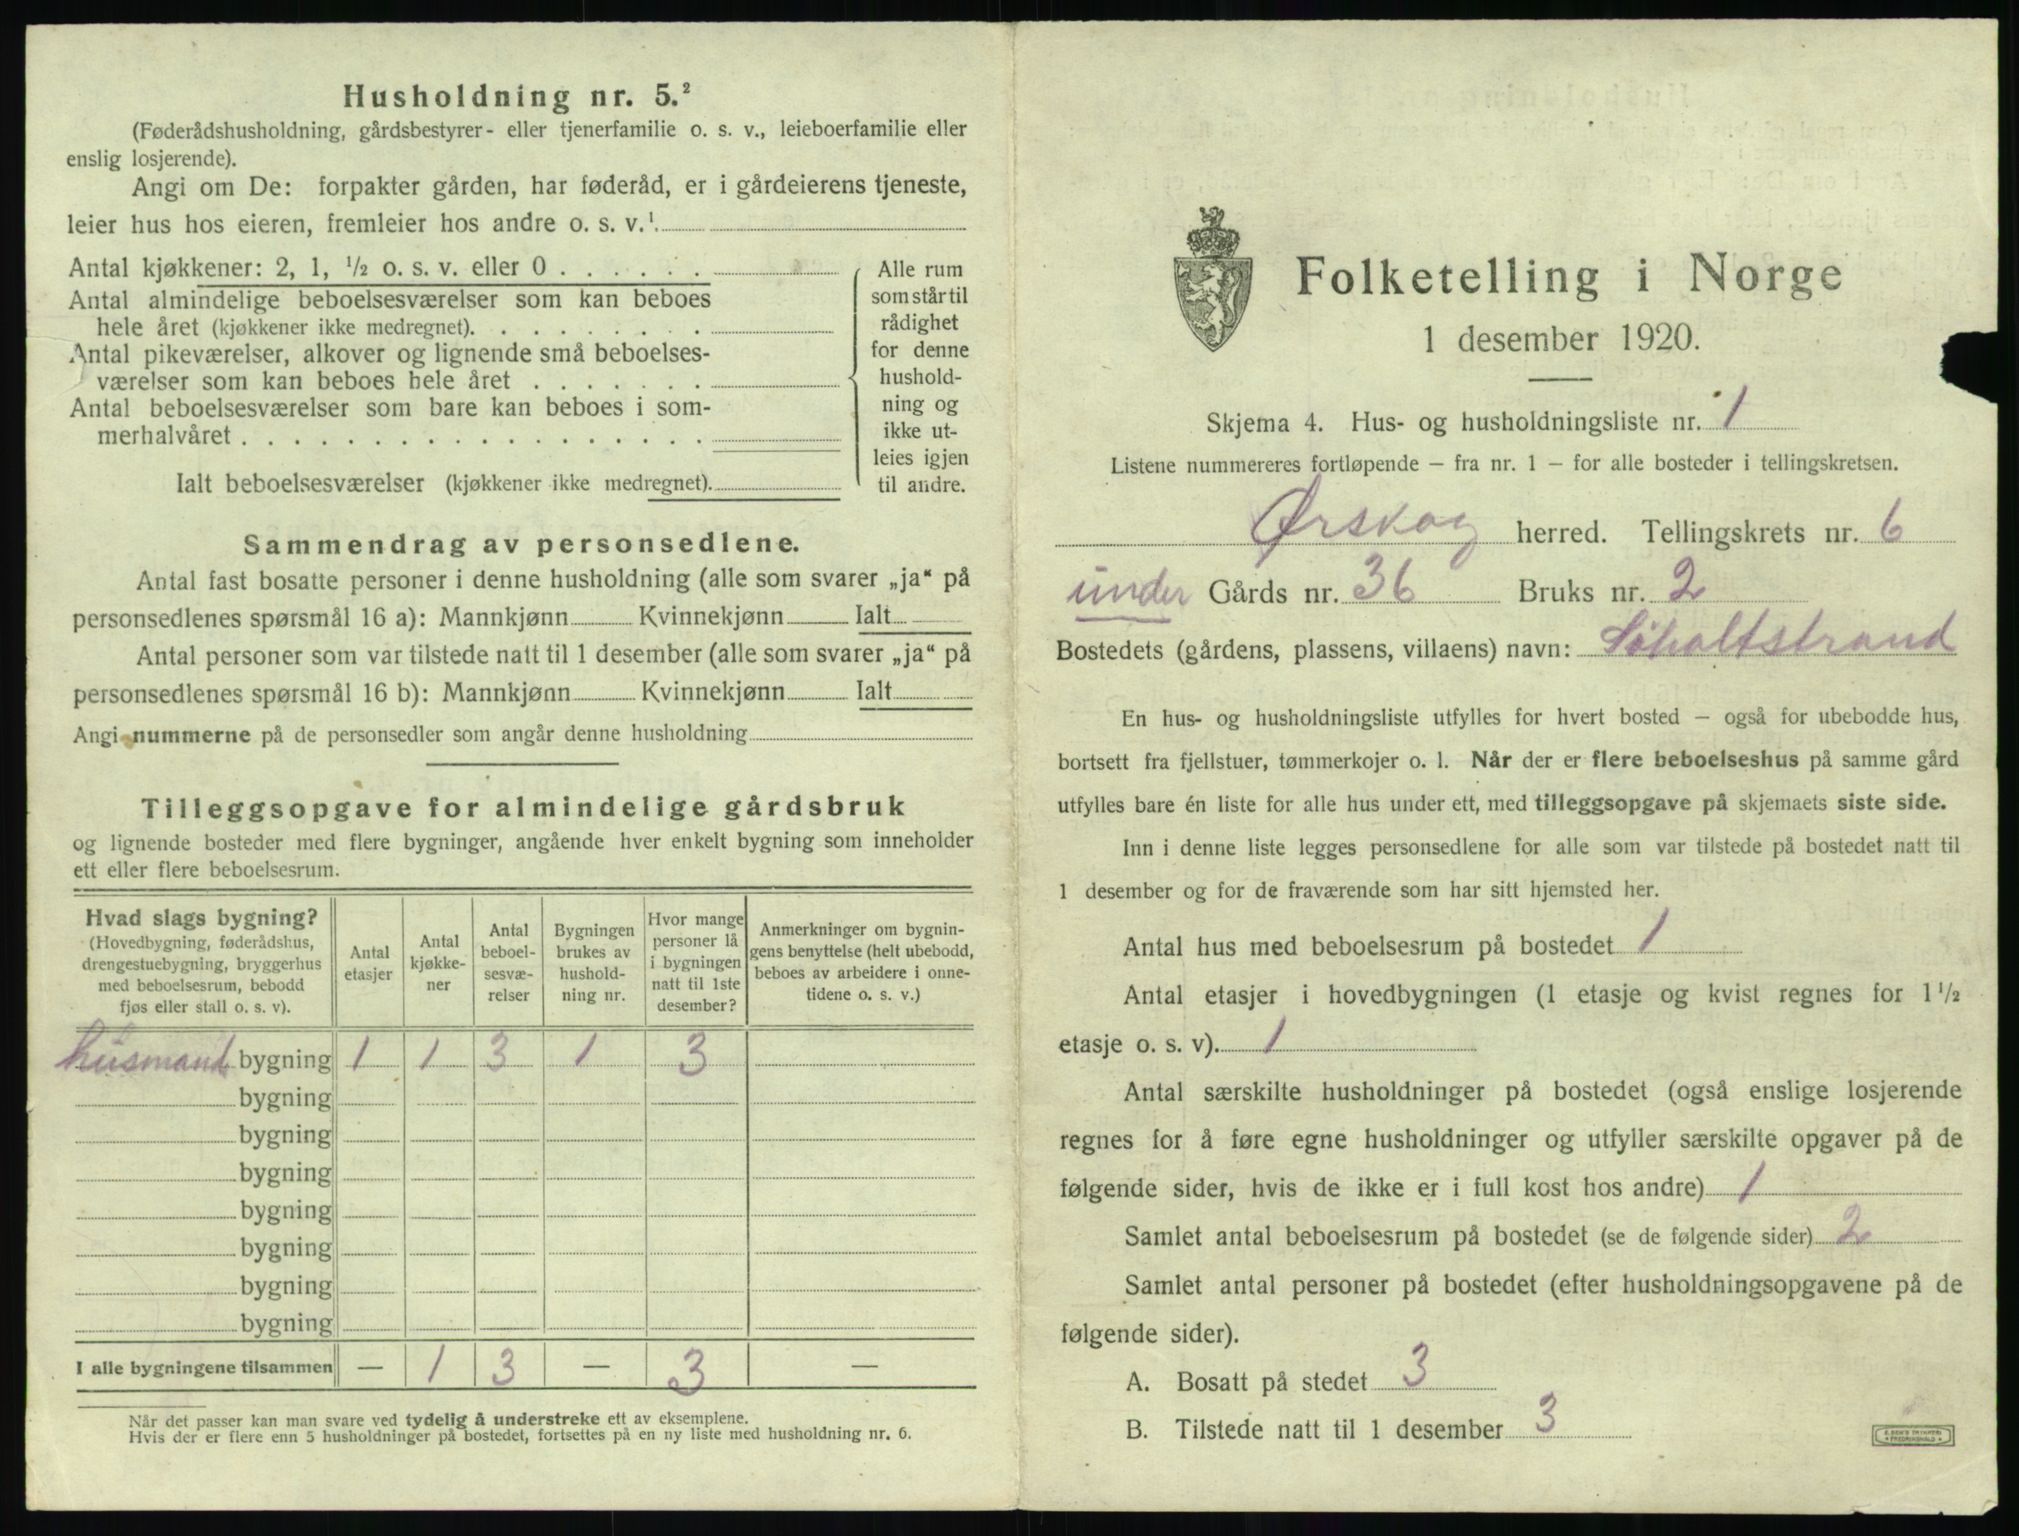 Husholdning nr. 5.²
(Føderådshusholdning, gårdsbestyrer- eller tjenerfamilie o. s. v., leieboerfamilie eller
enslig losjerende).
Angi om De: forpakter gården, har føderåd, er i gårdeierens tjeneste,
leier hus hos eieren, fremleier hos andre o. s. v.¹
Antal kjøkkener: 2, 1, ½ o. s. v. eller 0 . . . . . .
Antal almindelige beboelsesværelser som kan beboes
hele året (kjøkkener ikke medregnet). . . . . . . . .
Antal pikeværelser, alkover og lignende små beboelses-
værelser som kan beboes hele året . . . . . . .
Antal beboelsesværelser som bare kan beboes i som-
merhalvåret . . . . . . . . . . . . . . . . . .
Ialt beboelsesværelser (kjøkkener ikke medregnet).
Alle rum
som står til
rådighet
for denne
hushold-
ning og
ikke ut-
leies igjen
til andre.
Sammendrag av personsedlene.
Antal fast bosatte personer i denne husholdning (alle som svarer „ja“ på
personsedlenes spørsmål 16 a): Mannkjønn Kvinnekjønn Ialt
Antal personer som var tilstede natt til 1 desember (alle som svarer „ja“ på
personsedlenes spørsmål 16 b): Mannkjønn Kvinnekjønn Ialt
Angi nummerne på de personsedler som angår denne husholdning
Tilleggsopgave for almindelige gårdsbruk
og lignende bosteder med flere bygninger, angående hver enkelt bygning som inneholder
ett eller flere beboelsesrum.
Hvad slags bygning?
(Hovedbygning, føderådshus,
drengestuebygning, bryggerhus
med beboelsesrum, bebodd
fjøs eller stall o. s. v).
Antal
etasjer
Antal
kjøkke-
ner
Antal
beboel-
sesvæ-
relser
Bygningen
brukes av
hushold-
ning nr.
Hvor mange
personer lå
i bygningen
natt til 1ste
desember?
Anmerkninger om bygnin-
gens benyttelse (helt ubebodd,
beboes av arbeidere i onne-
tidene o. s. v.)
husmand bygning 1 1 3 1 3
bygning
bygning
bygning
bygning
bygning
bygning
bygning
I alle bygningene tilsammen — 1 3 — 3 —
Når det passer kan man svare ved tydelig å understreke ett av eksemplene.
Hvis der er flere enn 5 husholdninger på bostedet, fortsettes på en ny liste med husholdning nr. 6.
Folketelling i Norge
1 desember 1920.
Skjema 4. Hus- og husholdningsliste nr. 1
Listene nummereres fortløpende — fra nr. 1 — for alle bosteder i tellingskretsen.
Ørskog herred. Tellingskrets nr. 6
under Gårds nr. 36 Bruks nr. 2
Bostedets (gårdens, plassens, villaens) navn: Søholtstrand
En hus- og husholdningsliste utfylles for hvert bosted — også for ubebodde hus,
bortsett fra fjellstuer, tømmerkojer o. l. Når der er flere beboelseshus på samme gård
utfylles bare én liste for alle hus under ett, med tilleggsopgave på skjemaets siste side.
Inn i denne liste legges personsedlene for alle som var tilstede på bostedet natt til
1 desember og for de fraværende som har sitt hjemsted her.
Antal hus med beboelsesrum på bostedet 1
Antal etasjer i hovedbygningen (1 etasje og kvist regnes for 1½
etasje o. s. v). 1
Antal særskilte husholdninger på bostedet (også enslige losjerende
regnes for å føre egne husholdninger og utfyller særskilte opgaver på de
følgende sider, hvis de ikke er i full kost hos andre) 1
Samlet antal beboelsesrum på bostedet (se de følgende sider) 2
Samlet antal personer på bostedet (efter husholdningsopgavene på de
følgende sider).
A. Bosatt på stedet 3
B. Tilstede natt til 1 desember 3